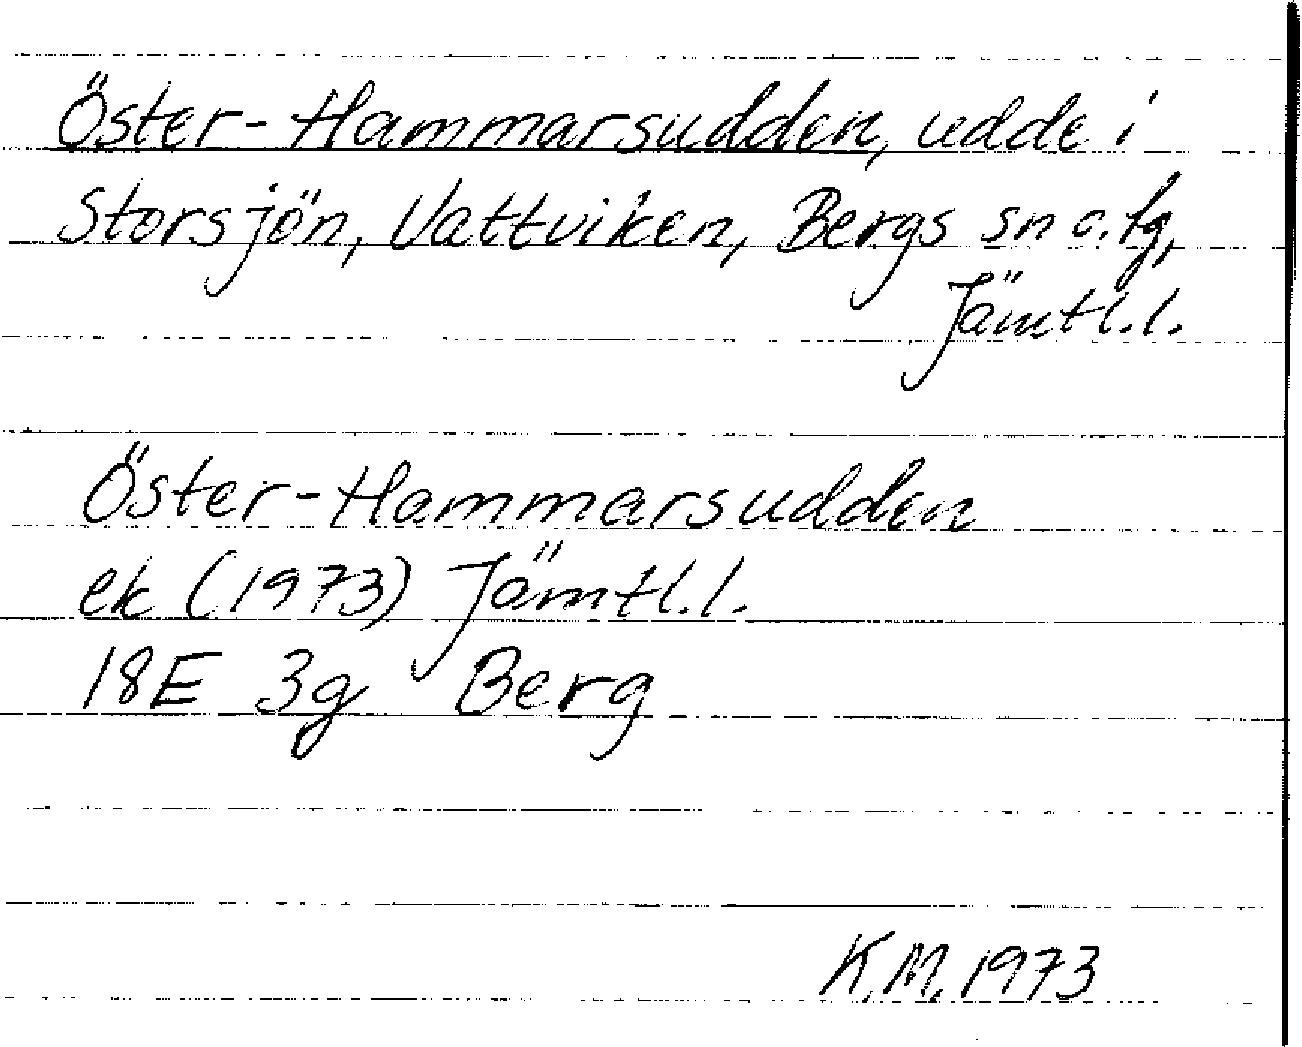 Öster-Hammarsudden, udde i
Storsjön, Vattviken, Bergs sn o. tg,
Jämtl.l.
Öster-Hammarsudden
ek (1973) Jämtl.l.
18E 3g Berg
K.M. 1973